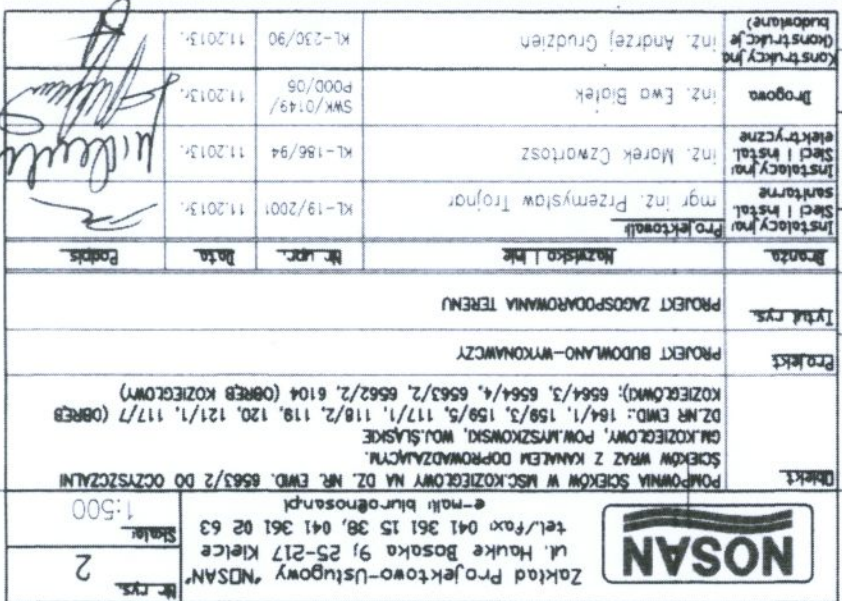 NOSAN
Zakład Projektowo-Usługowy "NOSAN"
ul. Hauke Bosaka 9; 25-217 Kielce
tel./fax: 041 361 15 38, 041 361 02 63
e-mail: biuro@nosan.pl
Nr rys.
2
Skala:
1:500
Obiekt
POMPOWNIA ŚCIEKÓW W MSC.KOZIEGŁOWY NA DZ. NR. EWID. 6563/2 DO OCZYSZCZALNI
ŚCIEKÓW WRAZ Z KANAŁEM DOPROWADZAJĄCYM.
GM.KOZIEGŁOWY, POW.MYSZKOWSKI, WOJ.ŚLĄSKIE
DZ.NR EWID.: 164/1, 159/3, 159/5, 117/1, 118/2, 119, 120, 121/1, 117/7 (OBRĘB
KOZIEGŁÓWKI); 6564/3, 6564/4, 6563/2, 6562/2, 6104 (OBRĘB KOZIEGŁOWY)
Projekt
PROJEKT BUDOWLANO-WYKONAWCZY
Tytuł rys.
PROJEKT ZAGOSPODAROWANIA TERENU
Branża Nazwisko i imie Nr upr. Data Podpis
Projektował:
Instalacyjna
Sieci i instal.
sanitarne
mgr inż. Przemysław Trojnar KL-19/2001 11.2013r.
Instalacyjna
Sieci i instal.
elektryczne
inż. Marek Czwartosz KL-186/94 11.2013r.
Drogowa inż. Ewa Białek SWK/0149/
POOD/06 11.2013r.
Konstrukcyjna
(konstrukcje
budowlane)
inż. Andrzej Grudzień KL-230/90 11.2013r.